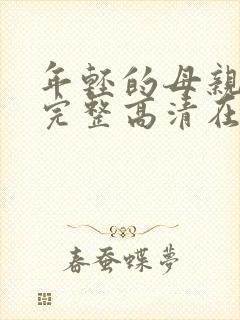 年轻的母親
完整高清在
春蚕蝶梦